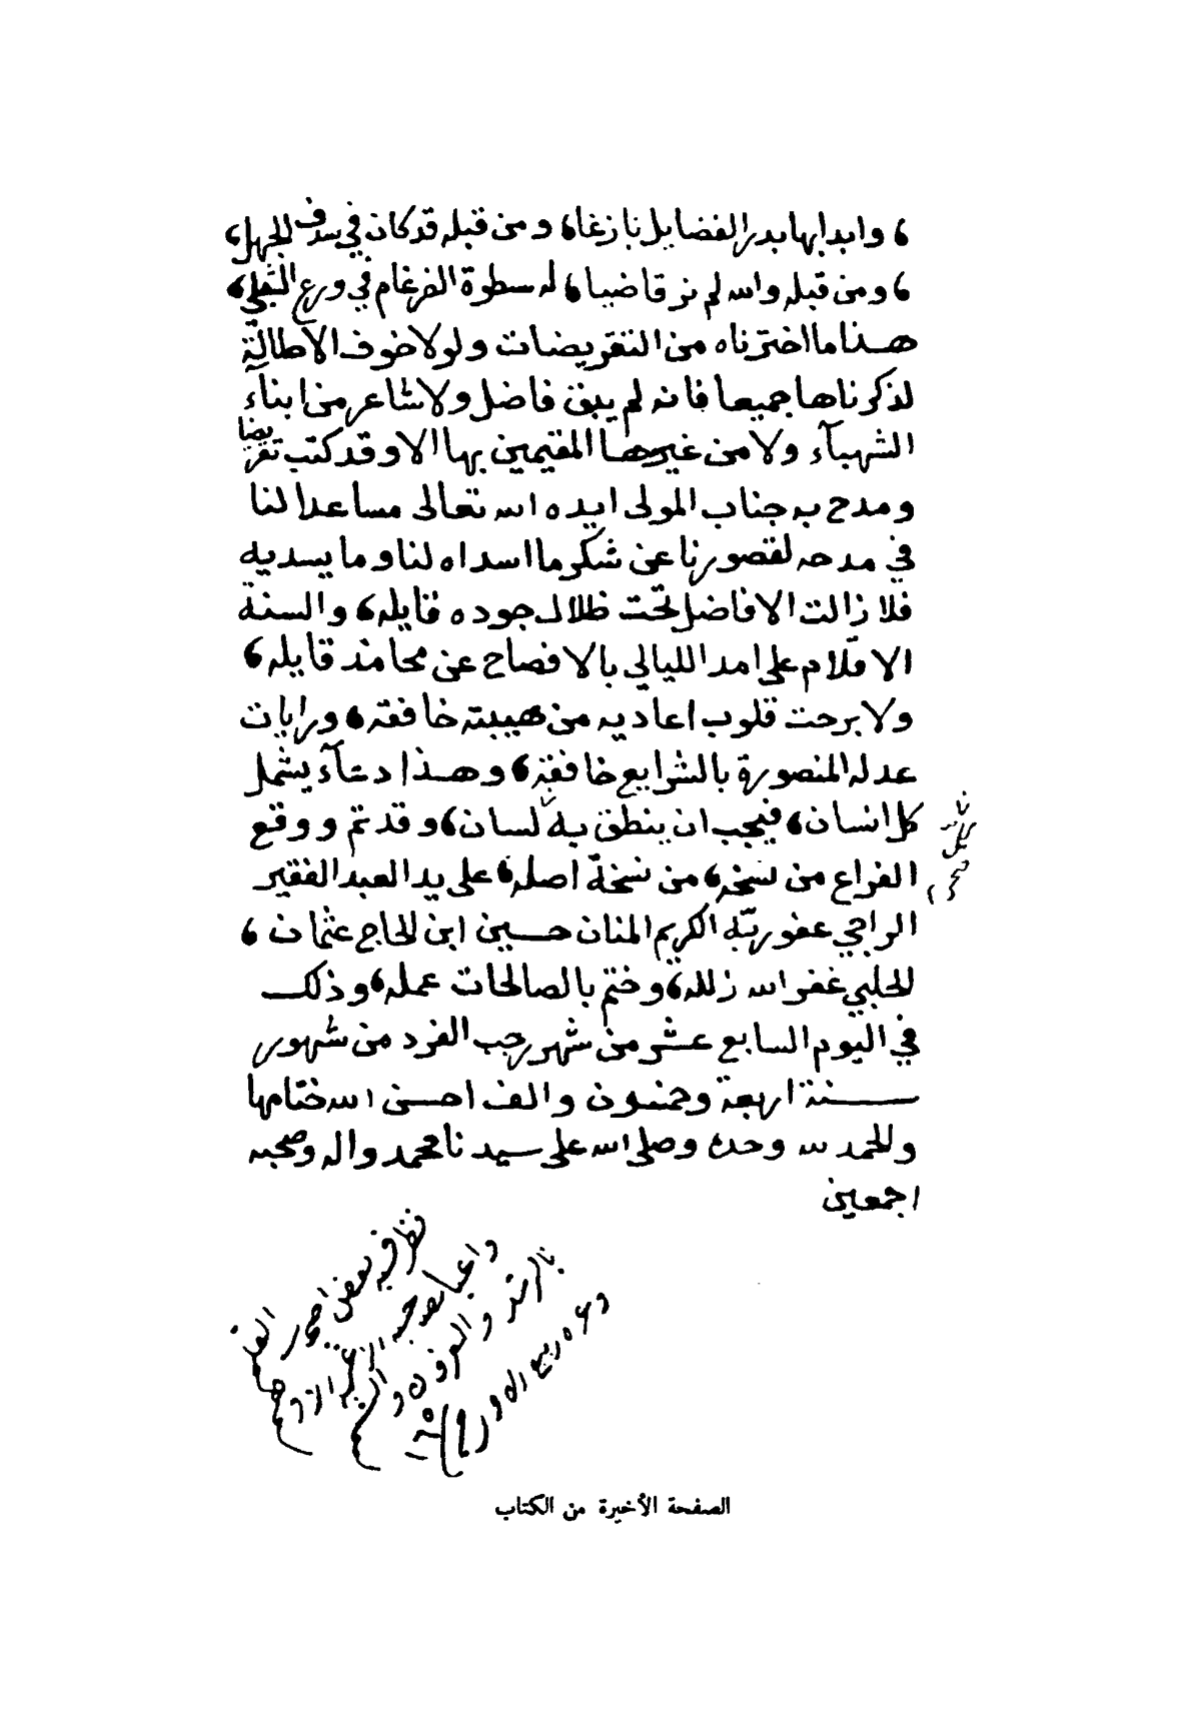 ، وابدا بها بدر الفضايل بازغا، ومن قبله قد كان في سدف الجهل،
، ومن قبله والله لم نر قاضيا، له سطوة الضرغام في ورع الشبلي،
هذا ما اخترناه من التقريضات ولولا خوف الاطالة
لذكرناها جميعا فانه لم يبق فاضل ولا شاعر من ابنآء
الشهبآء ولا من غيرها المقيمين بها الا وقد كتب تقريضا
ومدح به جناب المولى ايده الله تعالى مساعدا لنا
في مدحه لقصورنا عن شكر ما اسداه لنا وما يسديه
فلا زالت الافاضل تحت ظلال جوده قايله، والسنة
الاقلام على امد الليالي بالافصاح عن محامده قايله،
ولا برحت قلوب اعاديه من هيبته خافقه، ورايات
عدله المنصورة بالشرايع خافقه، وهذا دعآء يشمل
كل انسان، فيجب ان ينطق به لسان، وقد تم ووقع
الفراغ من نسخه، من نسخة اصله، على يد العبد الفقير
الراجي عفو ربه الكريم المنان حسين ابن الحاج عثمان،
الحلبي غفر الله زلله، وختم بالصالحات عمله، وذلك
في اليوم السابع عشر من شهر رجب الفرد من شهور
سنة اربعة وخمسون والف احسن الله ختامها
والحمد لله وحده وصلى الله على سيدنا محمد واله وصحبه
اجمعين
نظر فيه بعض
بالرشد
الصفحة الأخيرة من الكتاب